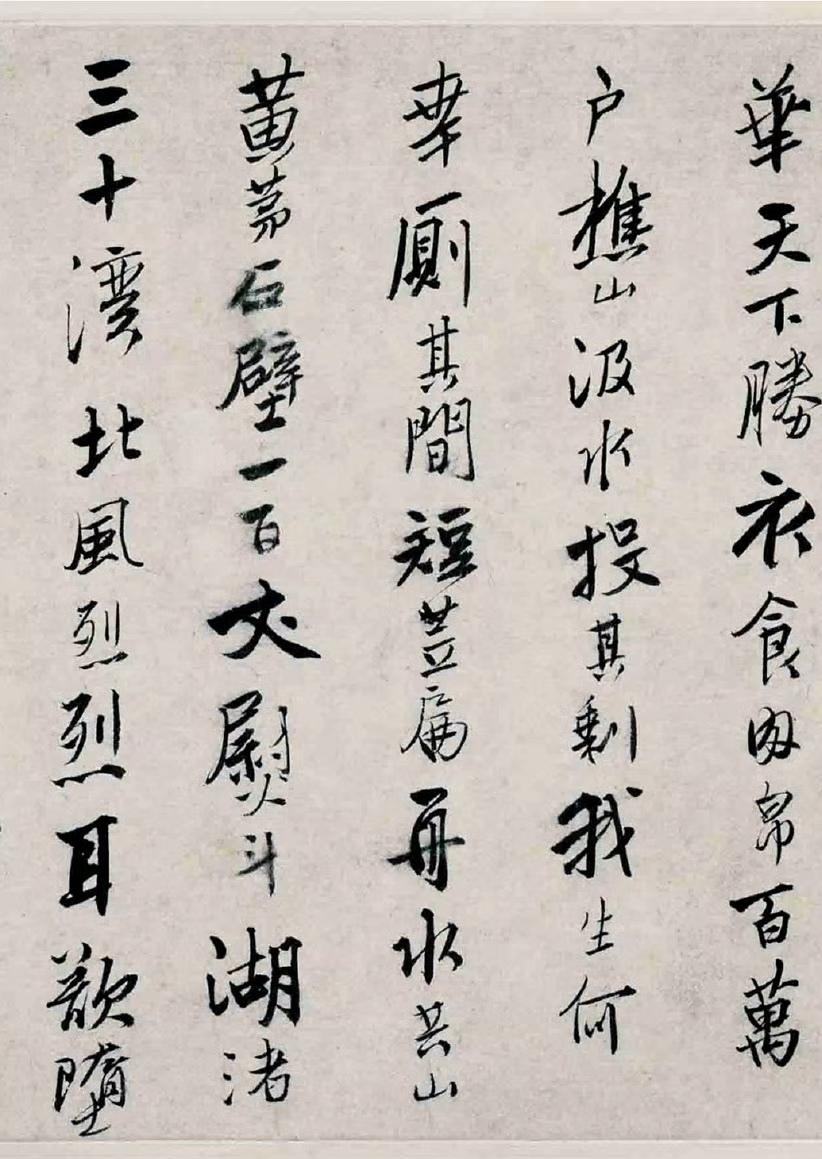 華天下勝衣食肉帛百萬
户樵山汲水投其剩我生何
幸廁其間短苙扁舟水共山
黄茅石壁一百丈熨斗湖渚
三十灣北風烈烈耳欲墮